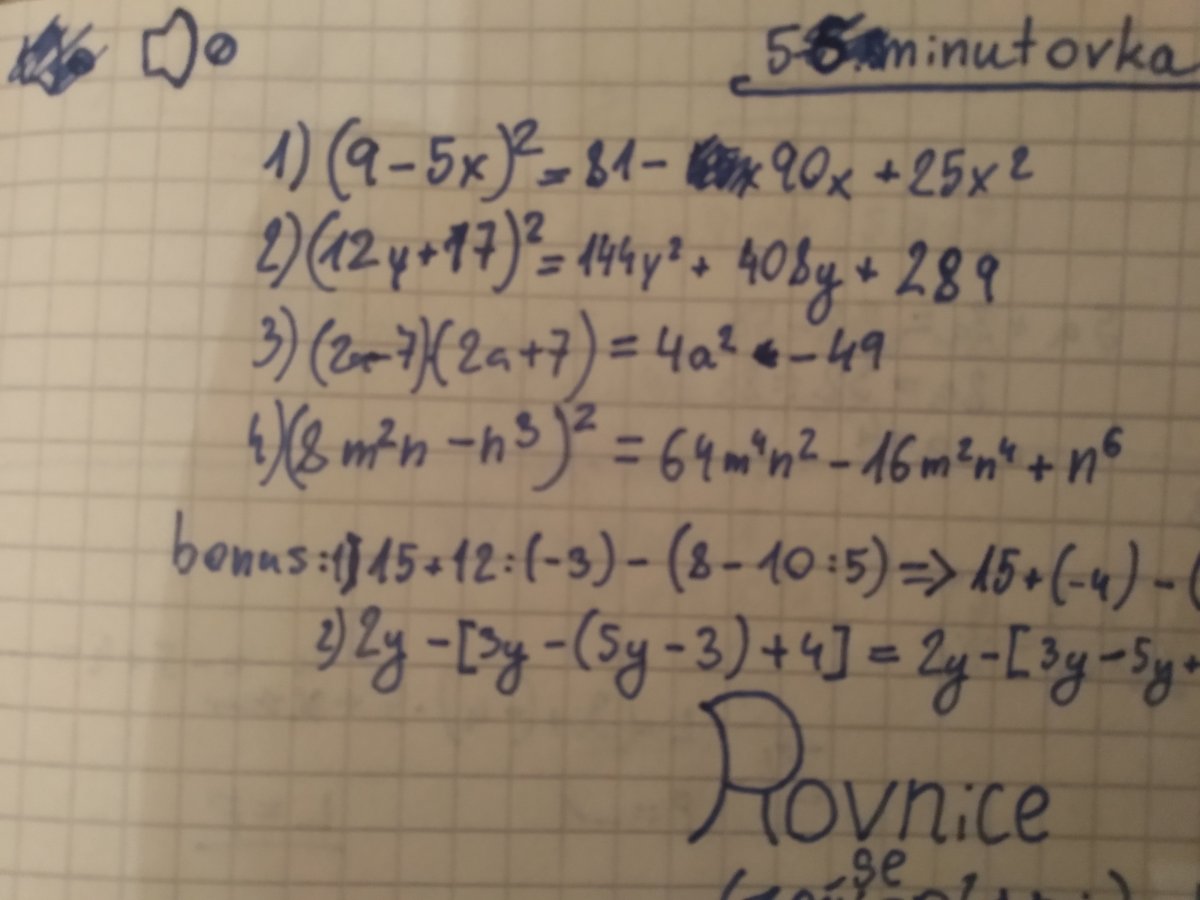 5 minutovka
1) (9 - 5x)² = 81 - 90x + 25x²
2) (12y + 17)² = 144y² + 408y + 289
3) (2a - 7)·(2a + 7) = 4a² - 49
4) (8m²n - n³)² = 64m⁴n² - 16m²n⁴ + n⁶
bonus: 1) 15 + 12 : (-3) - (8 - 10 : 5) => 15 + (-4) - (
2) 2y - [3y - (5y - 3) + 4] = 2y - [3y - 5y +
Rovnice
se